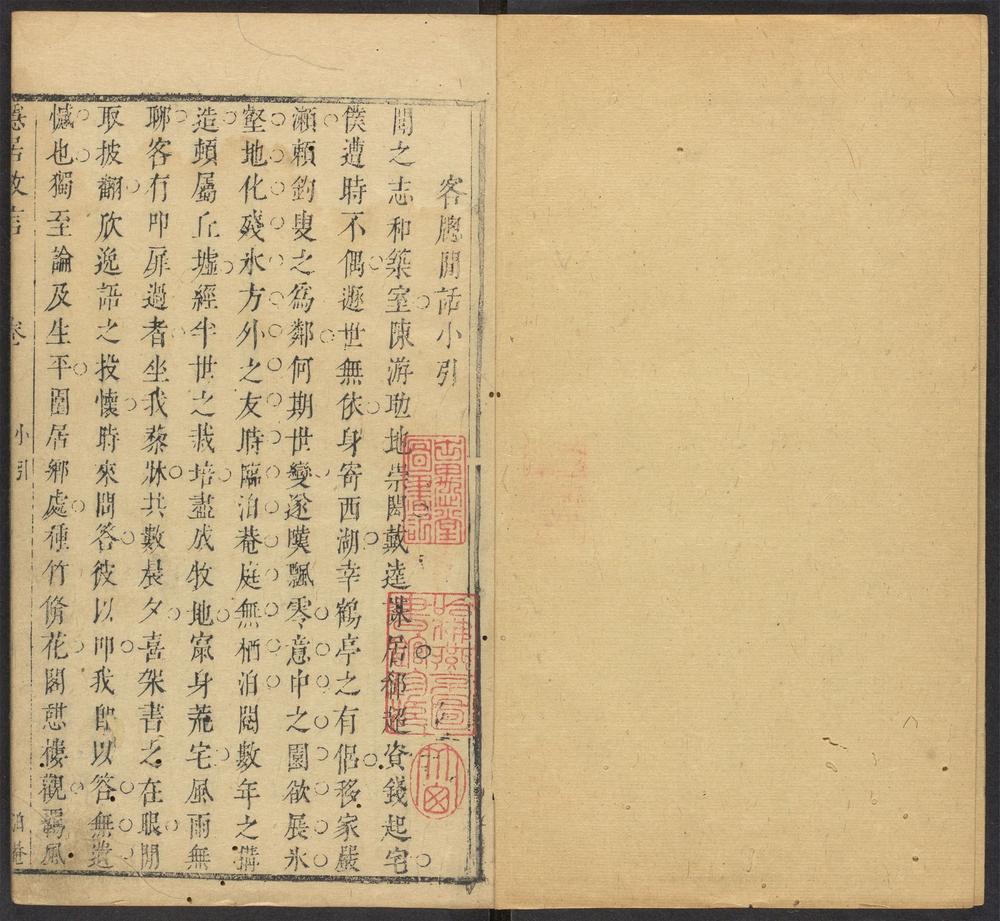 客牕閒話小引
聞之志和築室陳游助地崇戴逵謀居郗超資錢起宅
僕遭時不偶遯世無依身寄西湖幸鶴亭之有侶移家嚴
瀬頼釣叟之爲鄰何期世變遂嘆飄零意中之園欲展氷
壑地化殘氷方外之友時臨泊菴庭無栖泊閱數年之搆
造頓屬丘墟經半世之栽培盡成牧地寘身荒宅風雨無
聊客有叩扉過者坐我藜牀共數晨夕喜架書之在眼閒
取披翻欣逸語之投懷時來問答彼以叩我卽以答無遺
憾也獨至論及生平園居鄉處種竹脩花閣憇樓觀風
隱居放言 卷 小引 泊菴
堂圖書記
哈佛燕京圖書館珍藏